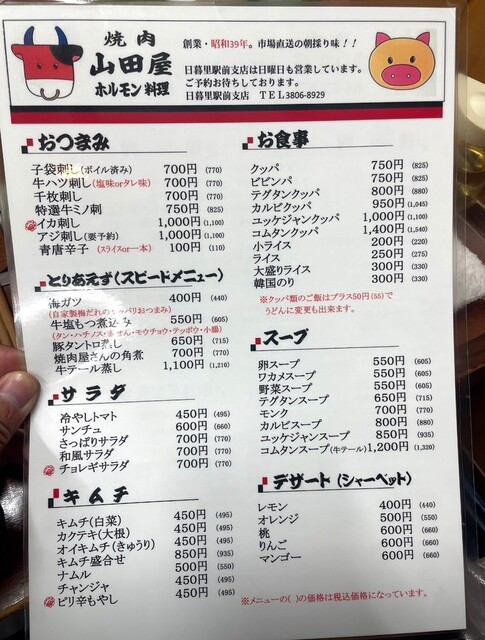 焼肉
山田屋
ホルモン料理
創業・昭和39年。市場直送の朝採り味！！
日暮里駅前支店は日曜日も営業しています。
ご予約お待ちしております。
日暮里駅前支店 TEL3806-8929
おつまみ
子袋刺し(ボイル済み) 700円 (770)
牛ハツ刺し(塩味orタレ味) 700円 (770)
千枚刺し 700円 (770)
特選牛ミノ刺 750円 (825)
イカ刺し 1,000円 (1,100)
アジ刺し(要予約) 1,000円 (1,100)
青唐辛子 (スライスor一本) 100円 (110)
とりあえず(スピードメニュー)
海ガツ 400円 (440)
(自家製梅だれのサッパリおつまみ)
牛塩もつ煮込み 550円 (605)
(タン・ハチノス・赤せん・モウチョウ・テッポウ・小腸)
豚タントロ蒸し 650円 (715)
焼肉屋さんの角煮 700円 (770)
牛テール蒸し 1,100円 (1,210)
サラダ
冷やしトマト 450円 (495)
サンチュ 600円 (660)
さっぱりサラダ 700円 (770)
和風サラダ 700円 (770)
チョレギサラダ 700円 (770)
キムチ
キムチ(白菜) 450円 (495)
カクテキ(大根) 450円 (495)
オイキムチ(きゅうり) 450円 (495)
キムチ盛合せ 850円 (935)
ナムル 500円 (550)
チャンジャ 450円 (495)
ピリ辛もやし 450円 (495)
お食事
クッパ 750円 (825)
ビビンバ 750円 (825)
テグタンクッパ 800円 (880)
カルビクッパ 950円 (1,045)
ユッケジャンクッパ 1,000円 (1,100)
コムタンクッパ 1,400円 (1,540)
小ライス 200円 (220)
ライス 250円 (275)
大盛りライス 300円 (330)
韓国のり 300円 (330)
※クッパ類のご飯はプラス50円(55)で
うどんに変更も出来ます。
スープ
卵スープ 550円 (605)
ワカメスープ 550円 (605)
野菜スープ 550円 (605)
テグタンスープ 650円 (715)
モンク 700円 (770)
カルビスープ 800円 (880)
ユッケジャンスープ 850円 (935)
コムタンスープ(牛テール) 1,200円 (1,320)
デザート(シャーベット)
レモン 400円 (440)
オレンジ 500円 (550)
桃 600円 (660)
りんご 600円 (660)
マンゴー 600円 (660)
※メニューの( )の価格は税込価格になっています。